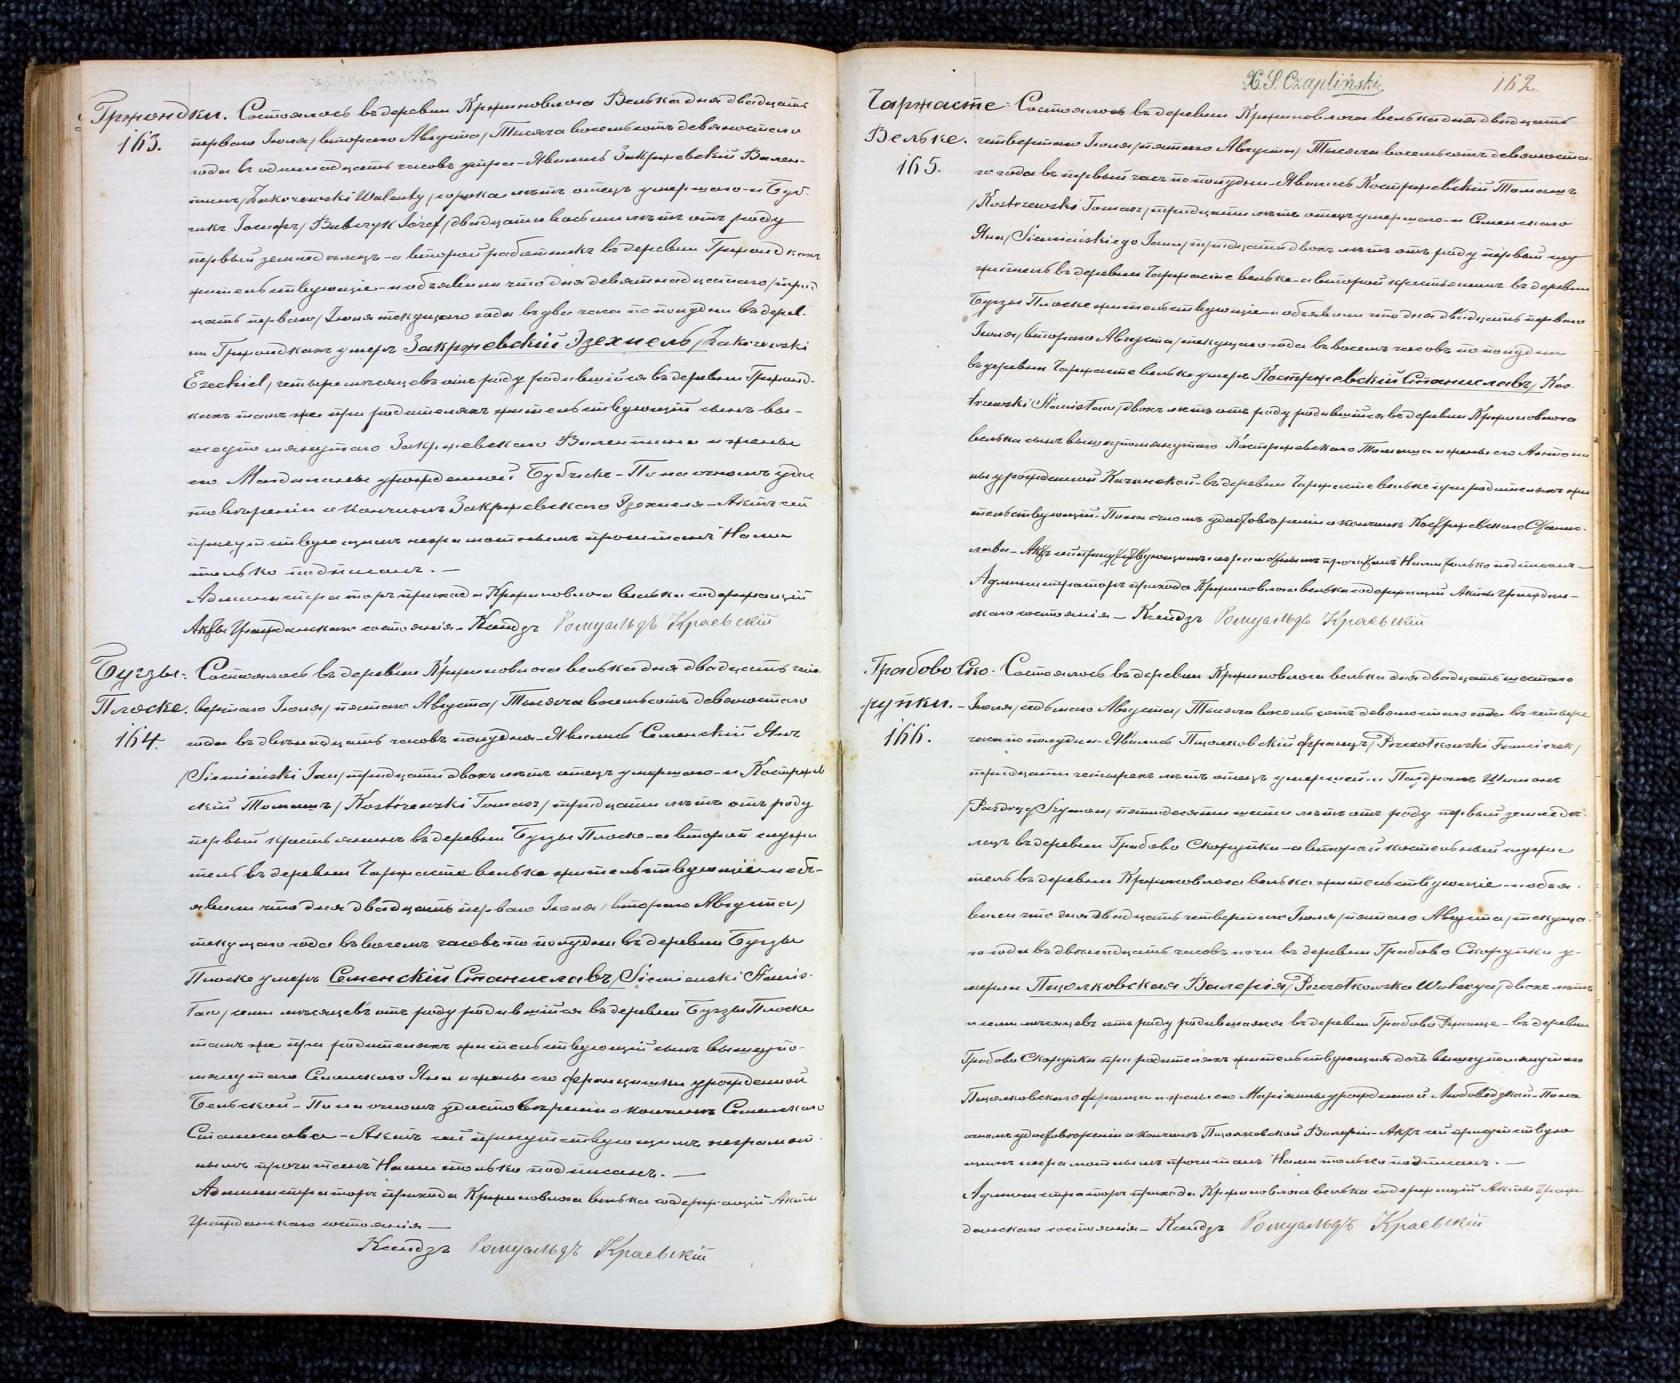 Гржондки. Состоялось въ деревни Кржиновлога Велька дня двадцать
163. перваго Іюля /втораго Августа/ Тысяча восемьсотъ девяностаго
года въ одинадцать часовъ утра - Явились Закржевскій Вален-
тинъ /Zakrzewski Walenty/ сорока лѣтъ отецъ умершаго - и Буб-
чикъ Іосифъ /Bubczyk Józef/ двадцати восьми лѣтъ отъ роду
первый земледѣлецъ - а второй работникъ въ деревни Гржондкахъ
жительствующіе - и объявили что дня девятнадцатаго /трид
цать перваго/ Іюля текущаго года въ два часа по полудни въ дерев-
ни Гржондкахъ умеръ Закржевскій Эзехіель /Zakrzewski
Ezechiel/ четыре мѣсяцевъ отъ роду родившійся въ деревни Гржонд-
кахъ тамъ же при родителяхъ жительствующій сынъ вы-
шеупомянутаго Закржевскаго Валентина и жены
его Магдалены урожденной Бубчикъ - По на очномъ удос
товѣреніи о кончинѣ Закржевскаго Эзехіеля - Актъ сей
присутствующимъ неграмотнымъ прочитанъ Нами
только подписанъ. -
Администраторъ прихода Кржиновлога велька содержащій
Акты Гражданскаго состоянія - Ксендзъ Ромуальдъ Краевскій
Бугзы- Состоялось въ деревни Кржиновлога велька дня двадцать чет-
Плоске. вертаго Іюля /пятаго Августа/ Тысяча восемьсотъ девяностаго
164. года въ двѣнадцать часовъ полудня - Явились Семенскій Янъ
/Siemieński Jan/ тридцати двохъ лѣтъ отецъ умершаго - и Костржев
скій Томашъ /Kostrzewski Tomasz/ тридцати лѣтъ отъ роду
первый крестьянинъ въ деревни Бугзы Плоске - а второй служи
тель въ деревни Чаржасте вельке жительствующіе - и объ-
явили что дня двадцать перваго Іюля /втораго Августа/
текущаго года въ восемъ часовъ по полудни въ деревни Бугзы
Плоске умеръ Семенскій Станиславъ /Siemienski Stanis-
ław/ семи мѣсяцевъ отъ роду родившійся въ деревни Бугзы Плоске
тамъ же при родителяхъ жительствующій сынъ вышеупо-
мянутаго Семенскаго Яна и жены его Францишки урожденной
Бельской - По на очномъ удостовѣреніи о кончинѣ Семенскаго
Станислава - Актъ сей присутствующимъ неграмот-
нымъ прочитанъ Нами только подписанъ. -
Администраторъ прихода Кржиновлога велька содержащій Акты
Гражданскаго состоянія -
Ксендзъ Ромуальдъ Краевскій
X. S. Czapliński 162.
Чаржасте- Состоялось въ деревни Кржиновлога велька дня двадцать
Вельке. четвертаго Іюля /пятаго Августа/ Тысяча восемьсотъ девяноста-
165. го года въ первый часъ по полудни - Явились Костржевскій Томашъ
/Kostrzewski Tomasz/ тридцати лѣтъ отецъ умершаго - и Семенскаго
Яна /Siemieńskiego Jana/ тридцати двохъ лѣтъ отъ роду первый слу
житель въ деревни Чаржасте вельке - а второй крестьянинъ въ деревни
Бугзы Плоске жительствующіе и объявили что дня двадцать перваго
Іюля /втораго Августа/ текущаго года въ восемъ часовъ по полудни
въ деревни Чаржасте вельке умеръ Костржевскій Станиславъ /Kos-
trzewski Stanisław/ двохъ лѣтъ отъ роду родившійся въ деревни Кржиновлога
велька сынъ вышеупомянутаго Костржевскаго Томаша и жены его Антони
ны урожденной Качинской - въ деревни Чаржасте вельке при родителяхъ жи
тельствующій. По на очномъ удостовѣреніи о кончинѣ Костржевскаго Станис-
лава - Актъ сей присутствующимъ неграмотнымъ прочитанъ Нами только подписанъ -
Администраторъ прихода Кржиновлога велька содержащій Акты Граждан-
скаго состоянія - Ксендзъ Ромуальдъ Краевскій
Грабово Ско- Состоялось въ деревни Кржиновлога велька дня двадцать шестаго
рупки. - Іюля /седьмаго Августа/ Тысяча восемьсотъ девяностаго года въ четыре
166. часа по полудни - Явились Пщолковскій Францъ /Pszczółkowski Franciszek/
тридцати четырехъ лѣтъ отецъ умершей - и Паздрый Шимонъ
/Pazdryj Szymon/ пятидесяти шести лѣтъ отъ роду первый земледѣ-
лецъ въ деревни Грабово Скорупки - а второй костельный служи
тель въ деревни Кржиновлога велька жительствующіе - и объя-
вили что дня двадцать четвертаго Іюля /пятаго Августа/ текуща-
го года въ двѣнадцать часовъ ночи въ деревни Грабово Скорупки у-
мерла Пщолковская Валерія /Pszczółkowska Walerya/ двохъ лѣтъ
и семи мѣсяцевъ отъ роду родившаяся въ деревни Грабово Ржанце - въ деревни
Грабово Скорупки при родителяхъ жительствующая дочь вышеупомянутаго
Пщолковскаго Франца и жены его Маріянны урожденной Любовидзкой - По на
очномъ удостовѣреніи о кончинѣ Пщолковской Валеріи - Актъ сей присутствую
щимъ неграмотнымъ прочитанъ Нами только подписанъ. -
Администраторъ прихода Кржиновлога велька содержащій Акты Граж
данскаго состоянія - Ксендзъ Ромуальдъ Краевскій